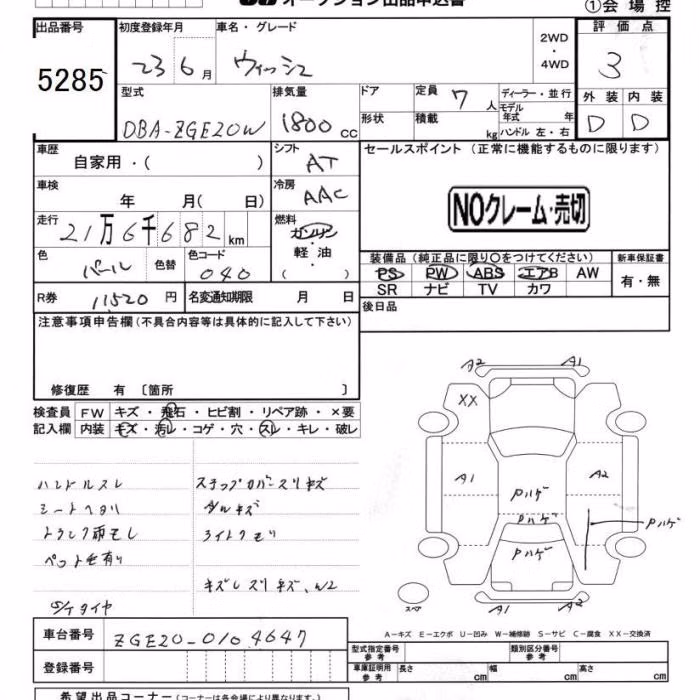 オークション出品申込書 ①会場控
出品番号 初度登録年月 車名・グレード 2WD・4WD 評価点
5285 23 6月 ウィッシュ 3
型式 排気量 ドア 定員 7人 ディーラー・並行 外装 内装
DBA-ZGE20W 1800cc 形状 積載 kg モデル年式 年 ハンドル 左・右 D D
車歴 自家用・( ) シフト AT セールスポイント (正常に機能するものに限ります)
車検 年 月( 日) 冷房 AAC
NOクレーム・売切
走行 21万6千682km 燃料 ガソリン・軽油( )
色 パール 色替 色コード 040
装備品 (純正品に限り○をつけてください) 新車保証書
PS PW ABS エアB AW 有・無
SR ナビ TV カワ
R券 11520円 名変通知期限 月 日 後日品
注意事項申告欄 (不具合内容等は具体的に記入して下さい)
修復歴 有 〔箇所 〕
検査員 FW キズ・飛石・ヒビ割・リペア跡・×要
記入欄 内装 キズ・汚レ・コゲ・穴・スレ・キレ・破レ
ハンドルスレ ステップカバースリキズ
シートヘタリ ダルキズ
トランク雨モレ ライトクモリ
ペット毛有り
キズレスリキズ、W2
タイヤ
A2 A1
XX
A1 Pハゲ A2
Pハゲ Pハゲ
Pハゲ
スペア A1 A2
A-キズ E-エクボ U-凹み W-補修跡 S-サビ C-腐食 XX-交換済
車台番号 ZGE20-0104647
型式指定番号 参考 類別区分番号 参考
登録番号 車庫証明用 参考 長さ cm 幅 cm 高さ cm
希望出品コーナー (コーナーは各会場により異なります)